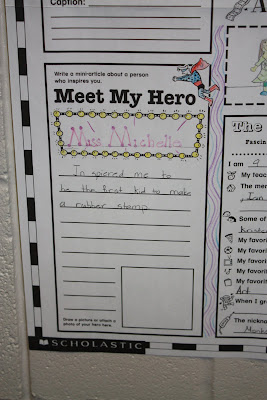 Caption:
Write a mini-article about a person
who inspires you.
Meet My Hero
Miss Michelle
In spiered me to
be the first kid to make
a rubber stamp
Draw a picture or attach a
photo of your hero here.
SCHOLASTIC
A
The
Fascin
I am a
My teac
The me
Ian
Some of
Kriste
My favori
My favori
My favori
My favori
My favori
Art
When I gr
The nickna